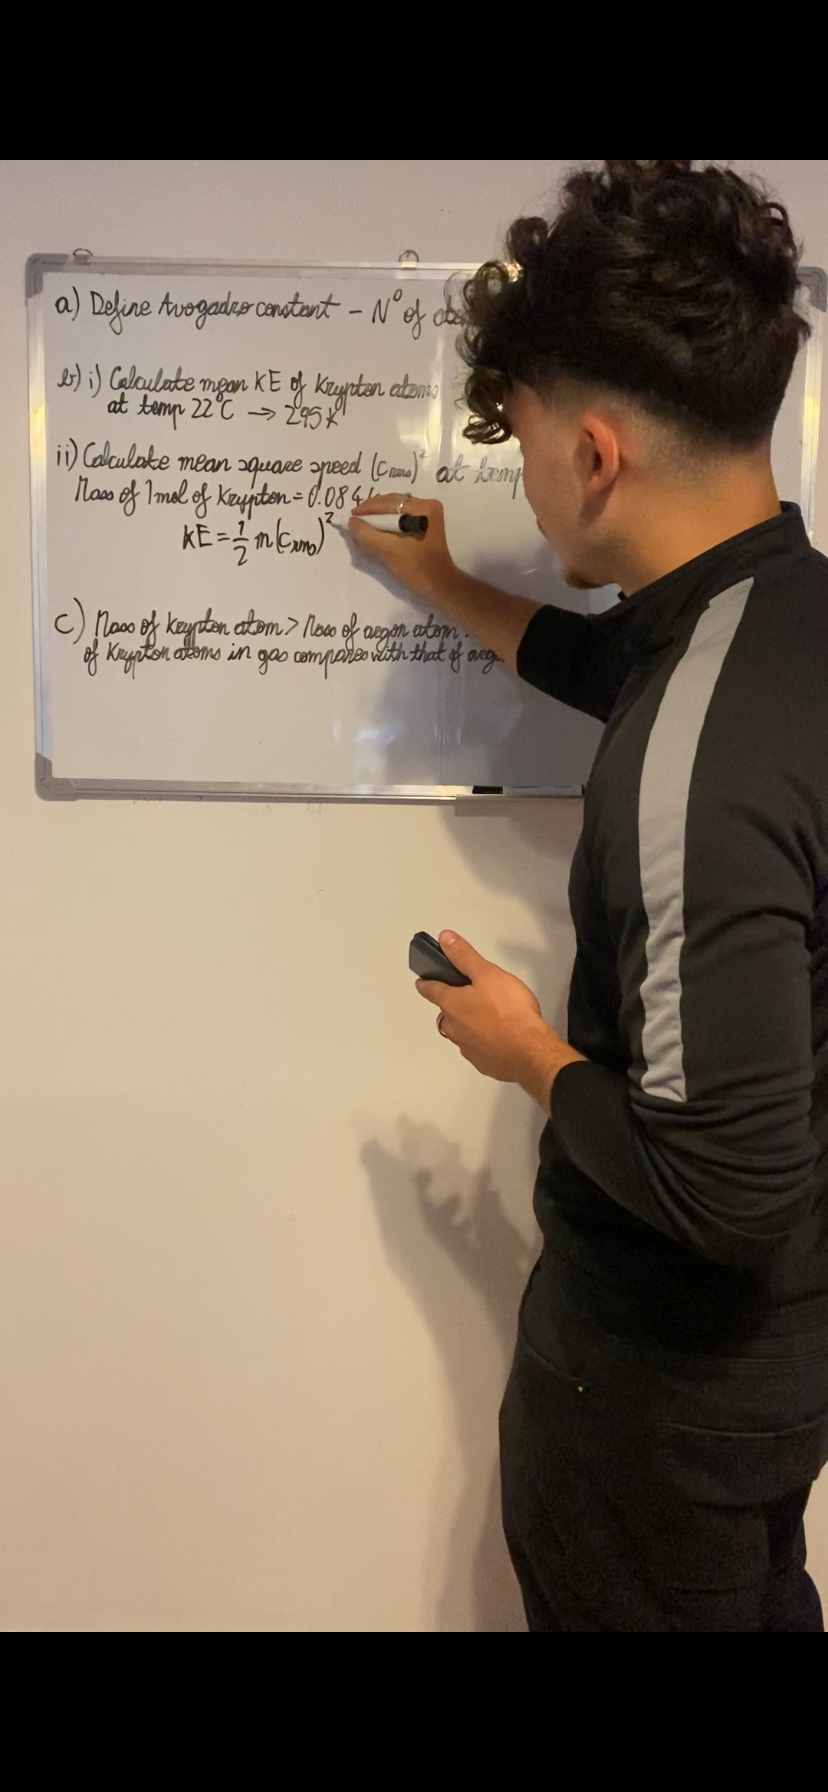 a) Define Avogadro constant - Nº of
b) i) Calculate mean KE of Krypton atoms
at temp 22°C → 295K
ii) Calculate mean square speed (Crms)² at temp
Mass of 1mol of Krypton = 0.084
KE = 1/2 m(Crms)²
c) Mass of Krypton atom > Mass of argon atom.
of Krypton atoms in gas compares with that of